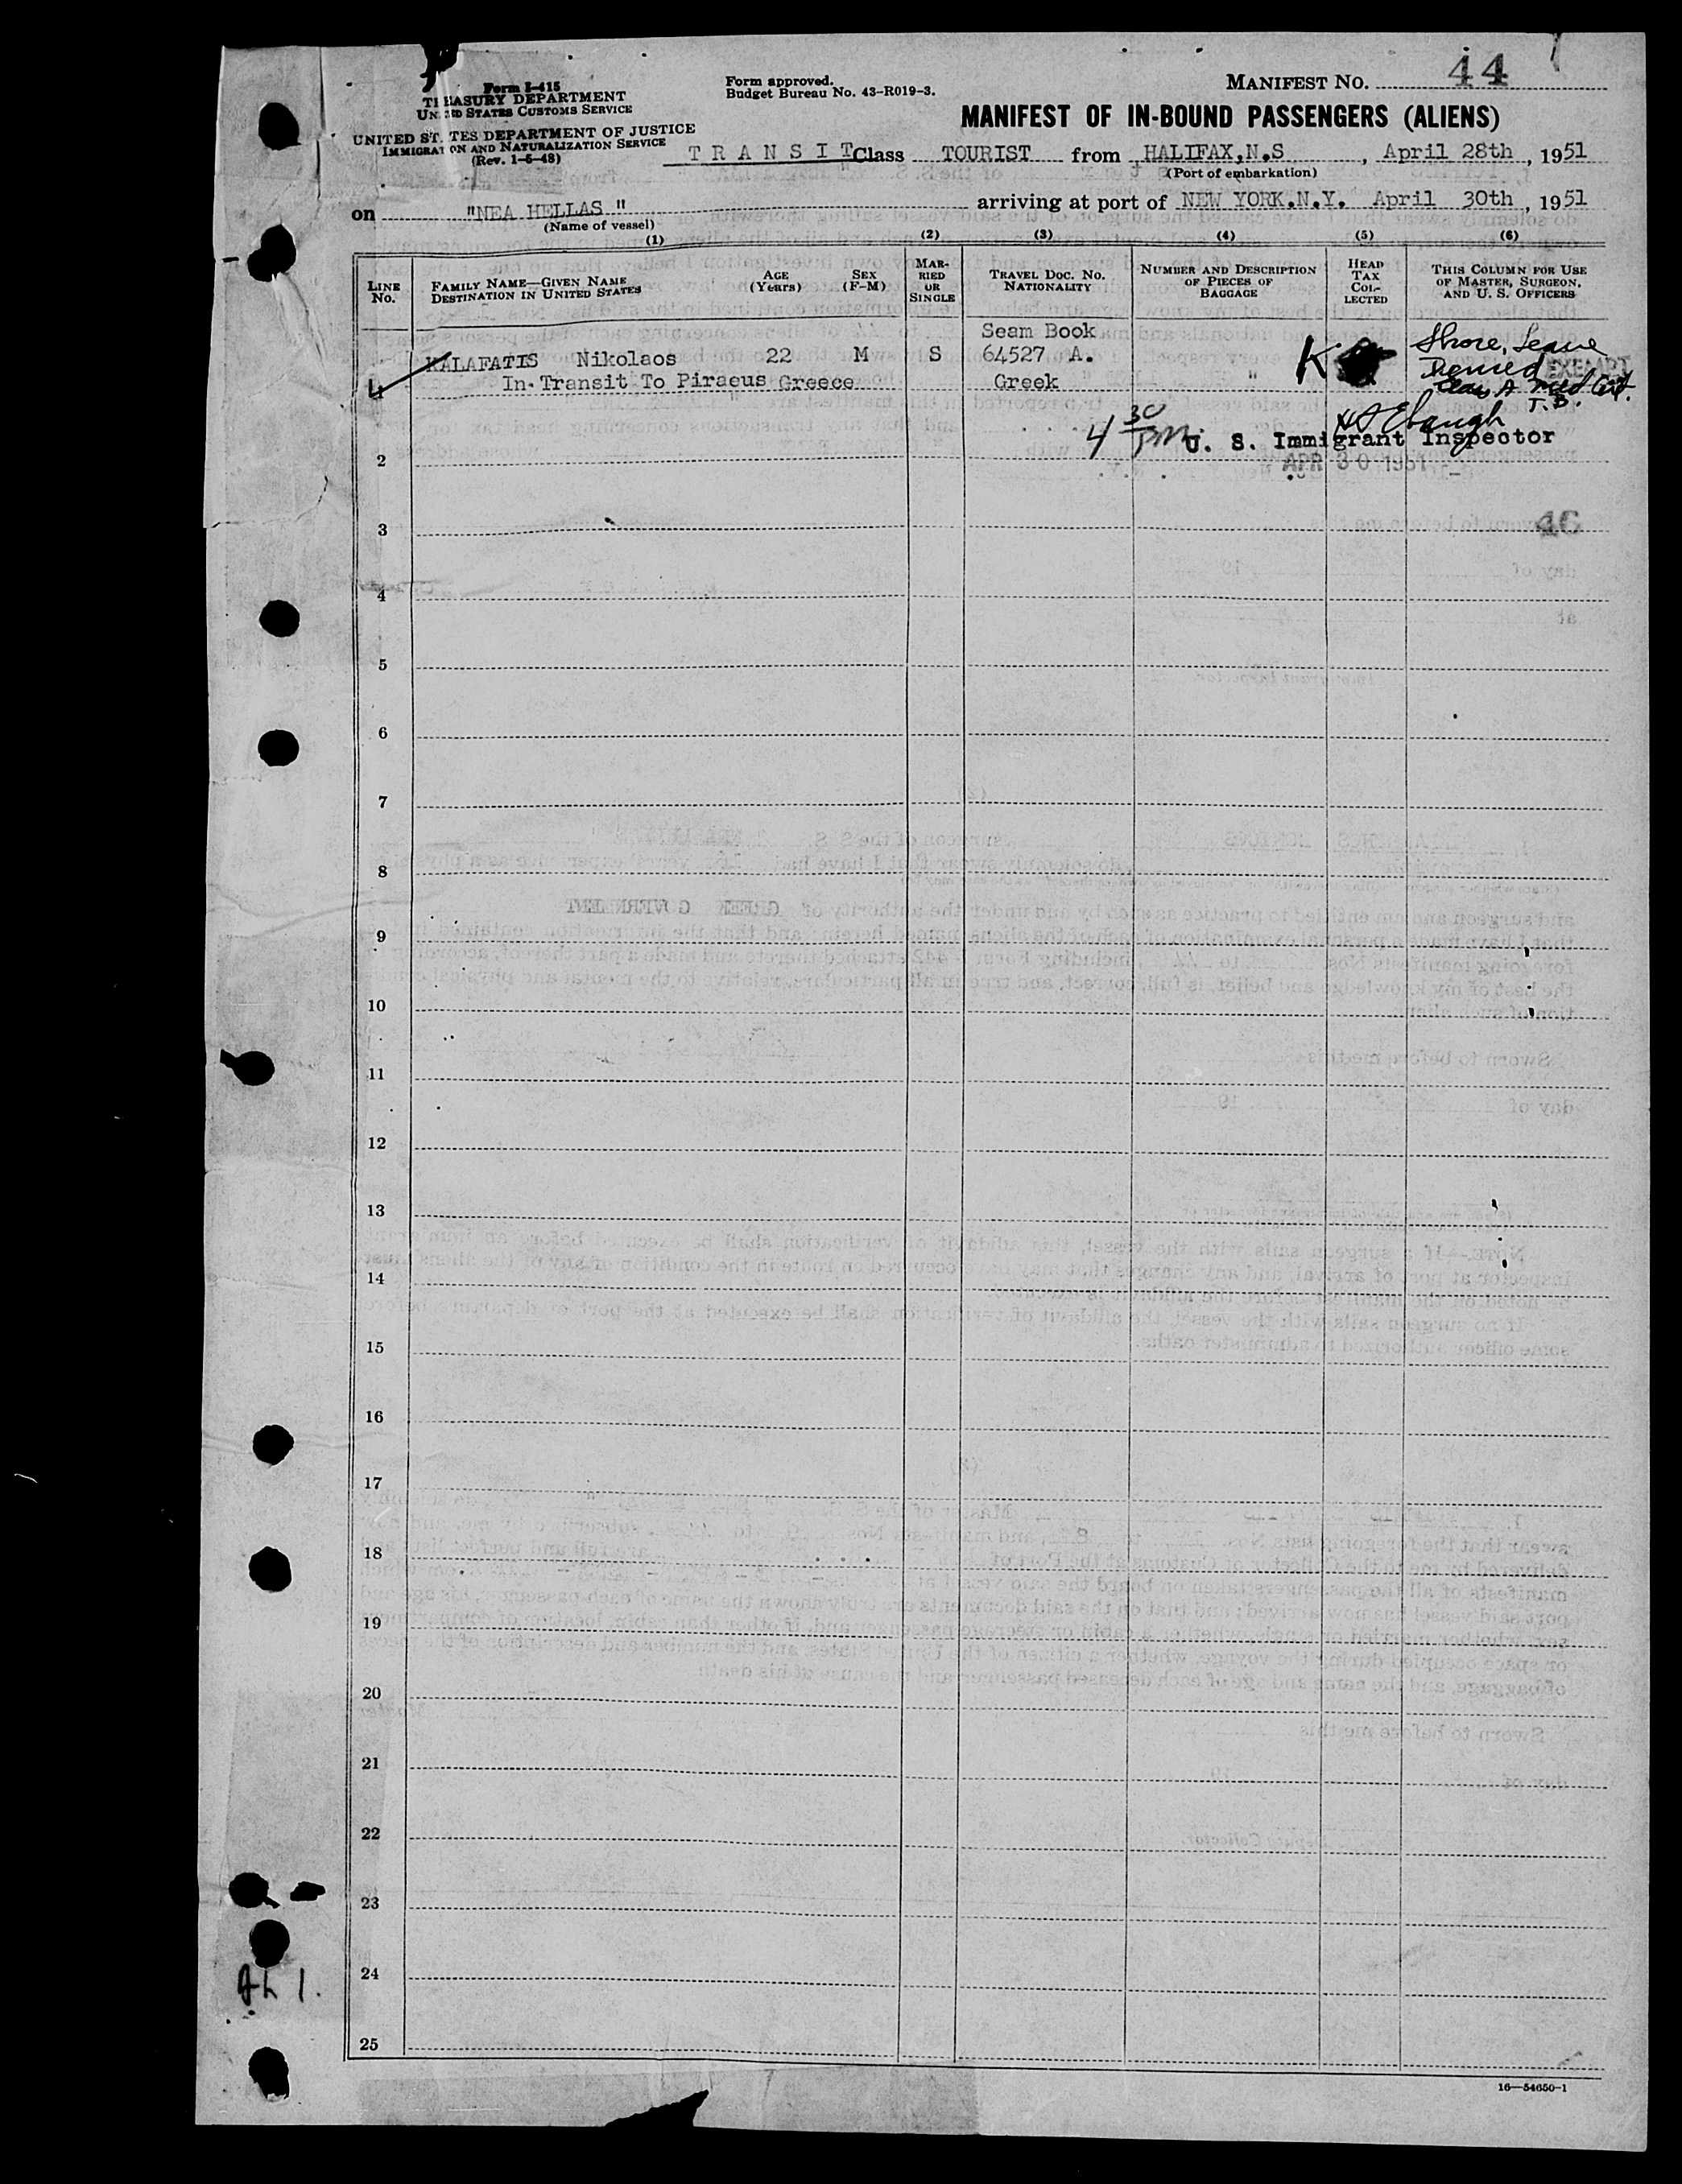 MANIFEST NO. 44
Form I-415
TREASURY DEPARTMENT
UNITED STATES CUSTOMS SERVICE
UNITED STATES DEPARTMENT OF JUSTICE
IMMIGRATION AND NATURALIZATION SERVICE
(Rev. 1-6-48)
Form approved.
Budget Bureau No. 43-R019-3.
MANIFEST OF IN-BOUND PASSENGERS (ALIENS)
TRANSIT Class TOURIST from HALIFAX,N.S , April 28th , 1951
(Port of embarkation)
on "NEA HELLAS " arriving at port of NEW YORK.N.Y. April 30th , 1951
(Name of vessel)
(1) (2) (3) (4) (5) (6)
LINE NO.
FAMILY NAME—GIVEN NAME
DESTINATION IN UNITED STATES
AGE (Years)
SEX (F-M)
MARRIED OR SINGLE
TRAVEL DOC. NO. NATIONALITY
NUMBER AND DESCRIPTION OF PIECES OF BAGGAGE
HEAD TAX COLLECTED
THIS COLUMN FOR USE OF MASTER, SURGEON, AND U. S. OFFICERS
Seam Book
KALAFATIS Nikolaos 22 M S 64527 A.
In Transit To Piraeus Greece Greek "
K
Shore Leave
Denied
EXEMPT
Class A Med Cert.
T.B.
4 30 PM
U. S. Immigrant Inspector
APR 30 1951
2
3
46
4
5
6
7
8
9
10
11
12
13
14
15
16
17
18
19
20
21
22
23
24
25
16—54650-1